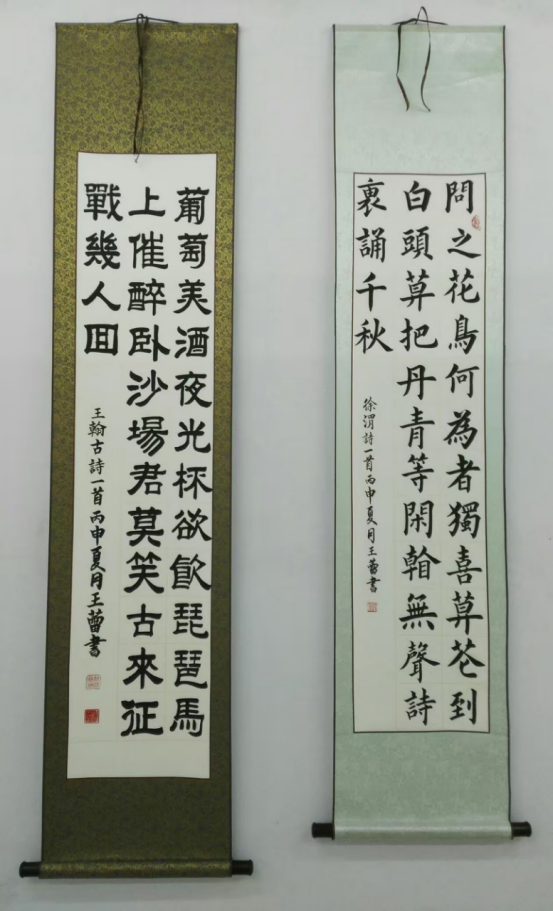 問之花鳥何為者獨喜萱花到
白頭莫把丹青等閑看無聲詩
裏誦千秋
徐渭詩一首丙申夏月王蕾書
葡萄美酒夜光杯欲飲琵琶馬
上催醉臥沙場君莫笑古來征
戰幾人回
王翰古詩一首丙申夏月王蕾書